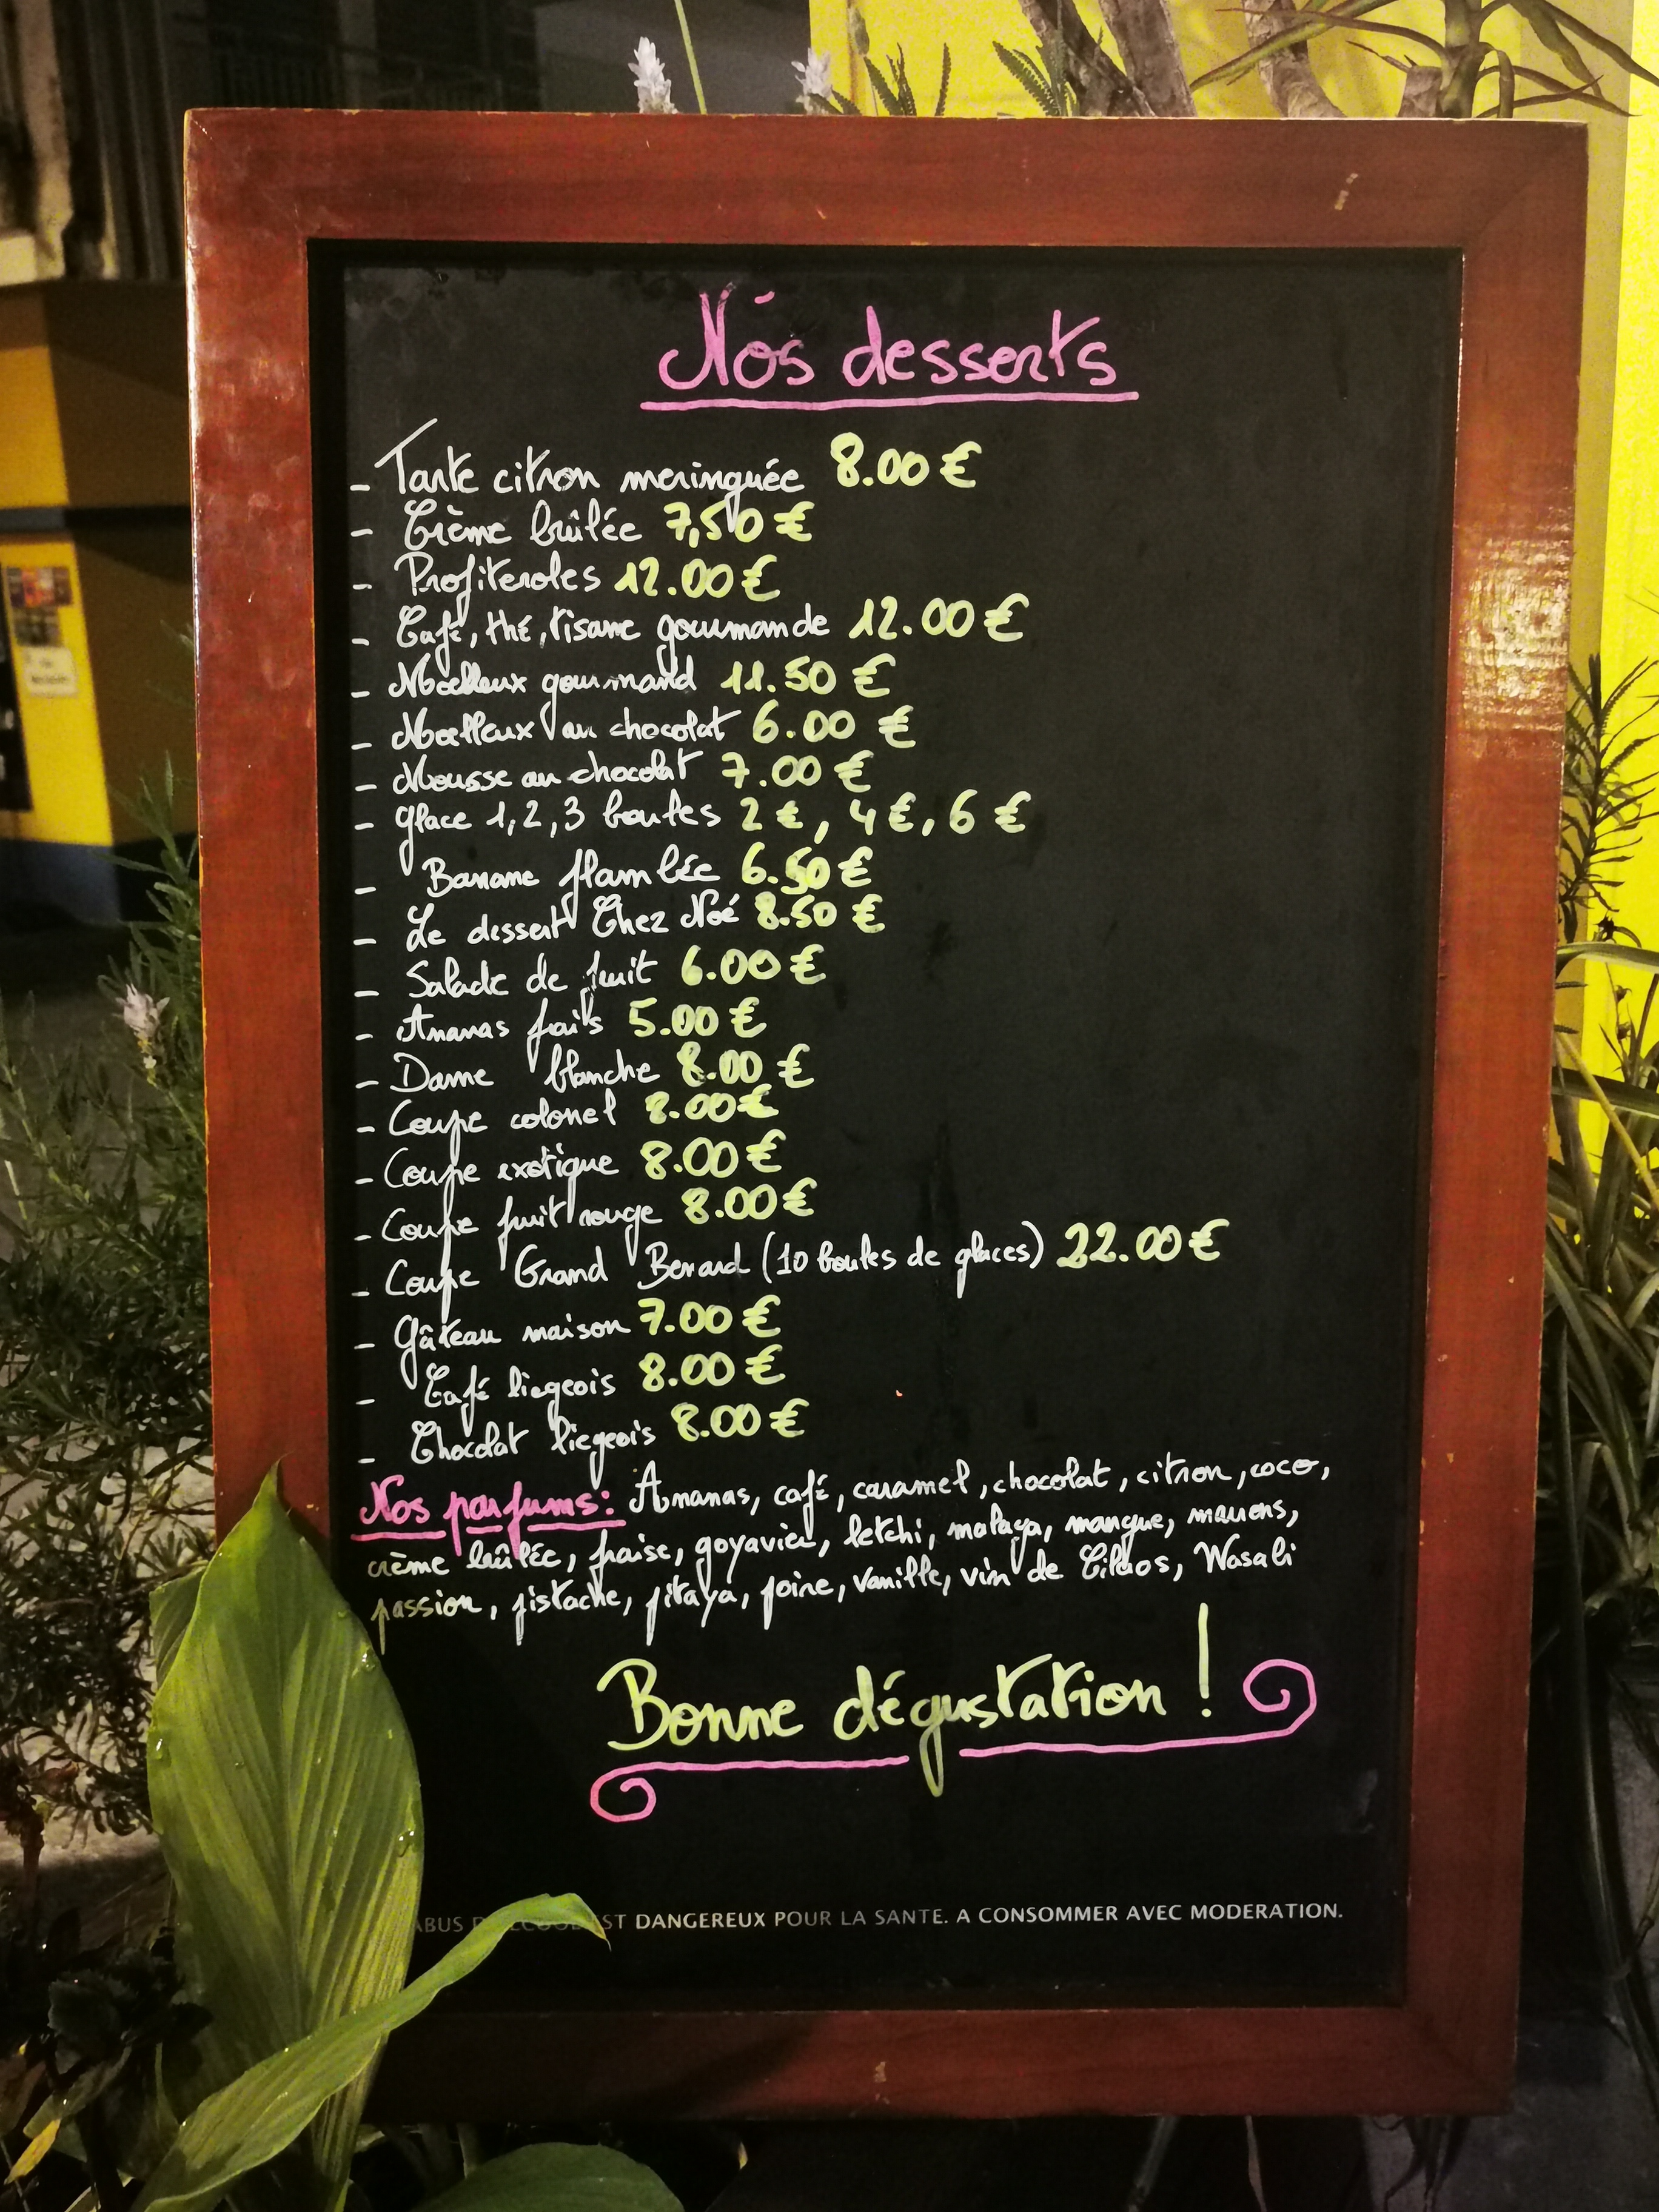 Nos desserts
- Tarte citron meringuée 8.00 €
- Crème brûlée 7,50 €
- Profiteroles 12.00 €
- Café, thé, tisane gourmande 12.00 €
- Moelleux gourmand 11.50 €
- Moelleux au chocolat 6.00 €
- Mousse au chocolat 7.00 €
- glace 1, 2, 3 boules 2 €, 4 €, 6 €
- Banane flambée 6.50 €
- Le dessert Chez Noé 8.50 €
- Salade de fruit 6.00 €
- Ananas frais 5.00 €
- Dame blanche 8.00 €
- Coupe colonel 8.00 €
- Coupe exotique 8.00 €
- Coupe fruit rouge 8.00 €
- Coupe Grand Benard (10 boules de glaces) 22.00 €
- Gâteau maison 7.00 €
- Café liegeois 8.00 €
- Chocolat liegeois 8.00 €
Nos parfums: Ananas, café, caramel, chocolat, citron, coco,
crème brûlée, fraise, goyavier, letchi, malaga, mangue, marrons,
passion, pistache, pitaya, poire, vanille, vin de Cilaos, Wasabi
Bonne dégustation !
ABUS D'ALCOOL EST DANGEREUX POUR LA SANTE. A CONSOMMER AVEC MODERATION.